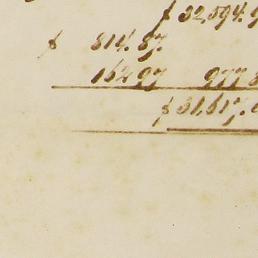 $ 32,594.9
$ 814.87.
162 97 977 8
$ 31,617.